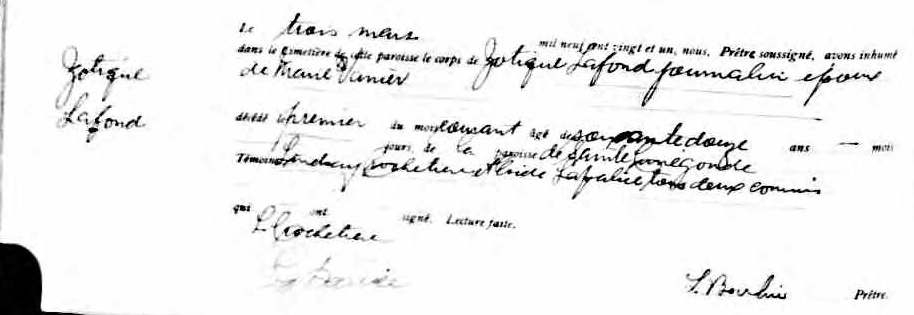 Zotique
Lafond
Le trois mars mil neuf cent vingt et un, nous, Prêtre soussigné, avons inhumé
dans le cimetière de cette paroisse le corps de Zotique Lafond journalier époux
de Marie Vanier
décédé le premier du mois courant âgé de soixante douze ans — mois
jours de la paroisse de Sainte Cunégonde
Témoins Crochetiere Alcide Lapalice tous deux commis
qui ont signé. Lecture faite.
L Crochetiere
Prêtre.